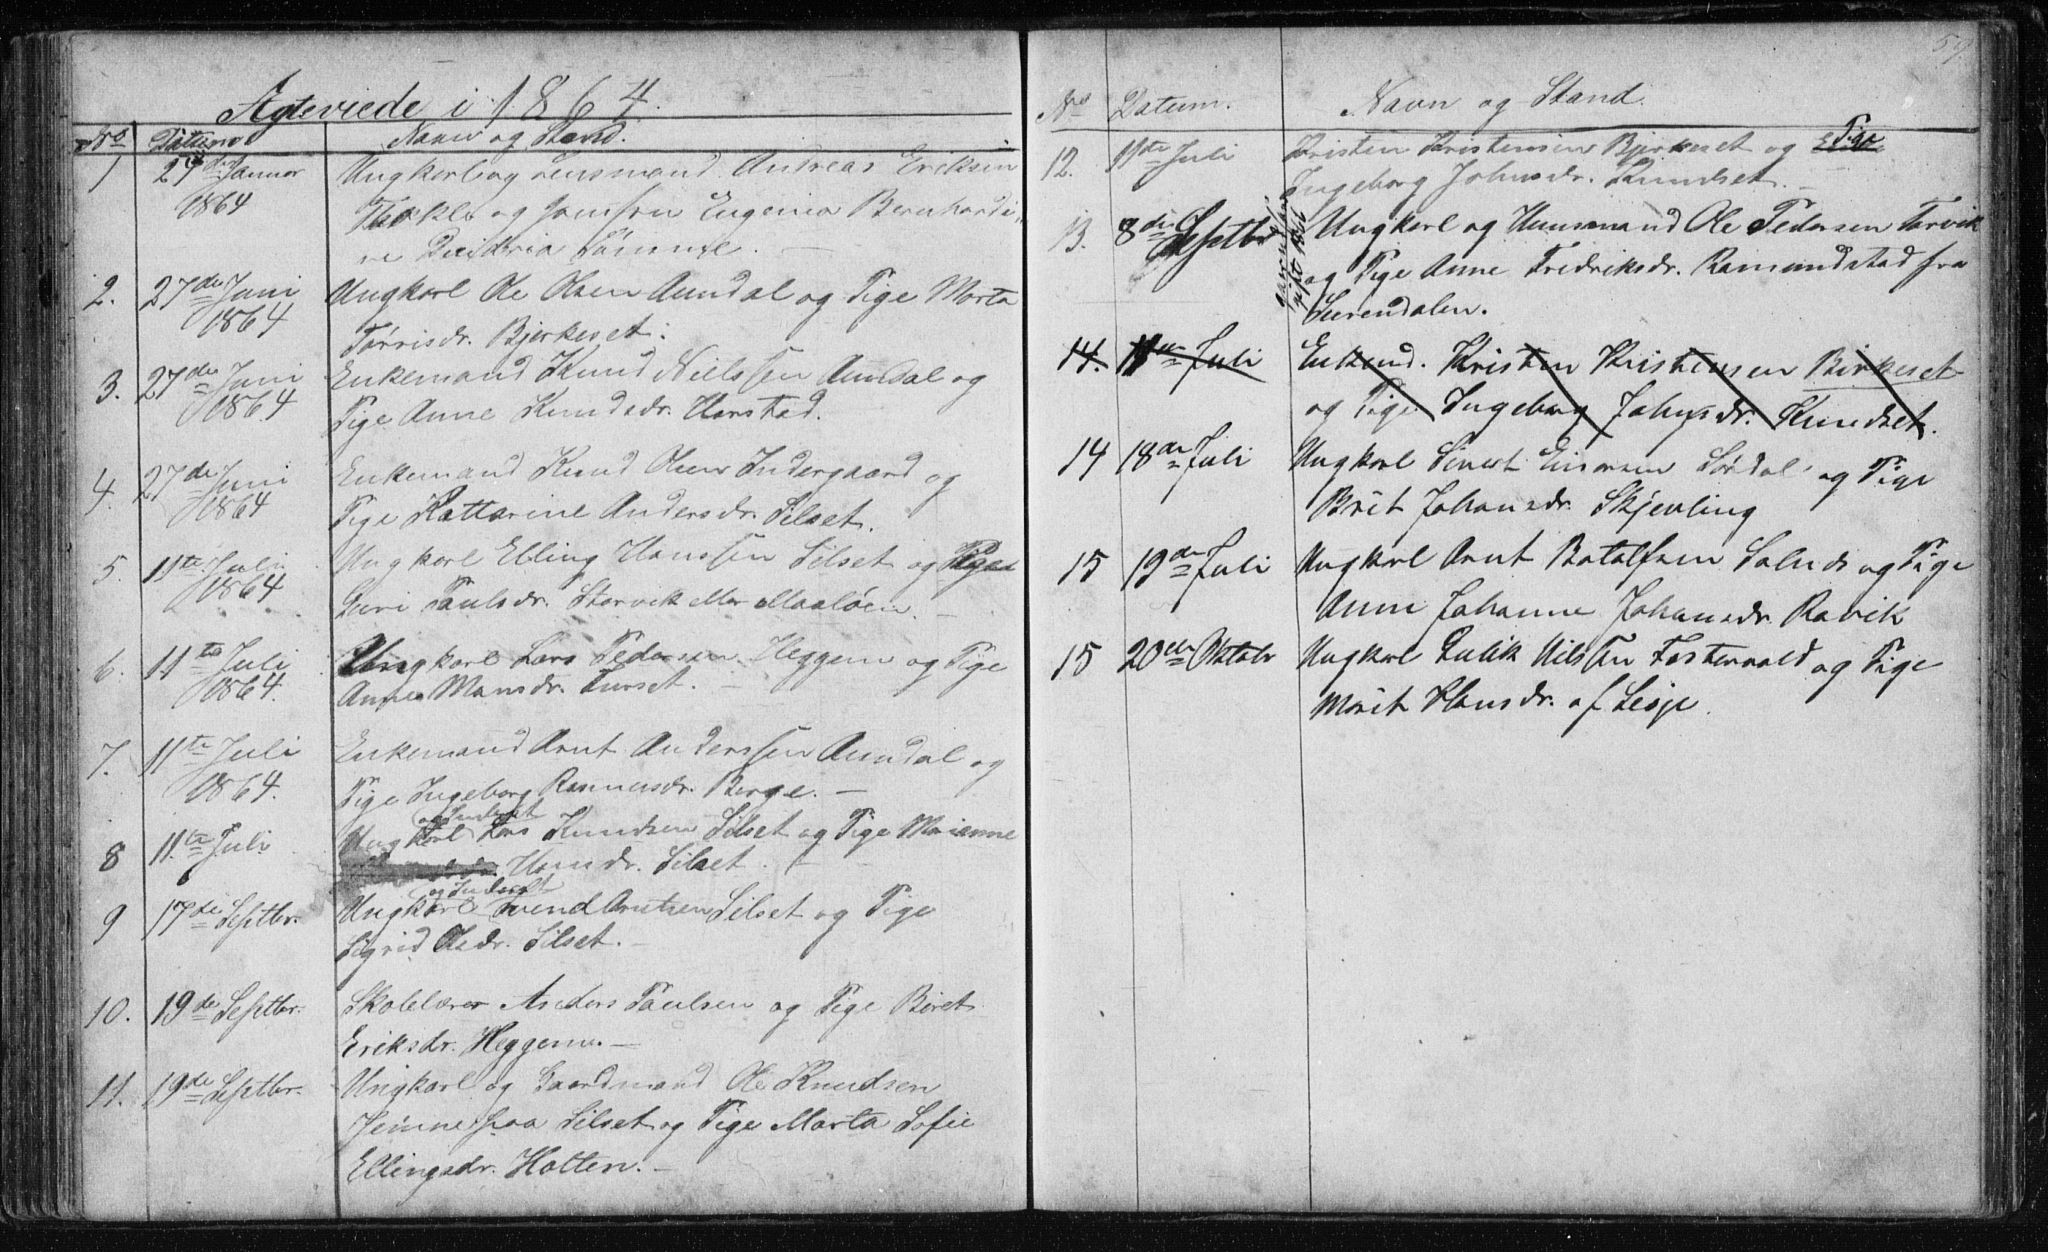 Agteviede i 1864.
No Datum Navn og Stand.
1 27de Januar Ungkarl og Lensmand Andreas Eriksen
1864 og Jomfru Eugenia Bernhardi-
ne
2. 27de Juni Ungkarl Ole Olsen Aundal og Pige Marta
1864 Tørrisdr. Bjerkeset.
3. 27de Juni Enkemand Knud Nielssen Aundal og
1864 Pige Anne Knudsdr. Harstad.
4. 27de Juni Enkemand Knud Olsen Indergaard og
1864 Pige Kattarine Andersdr. Silset.
5. 11te Juli Ungkarl Elling Hanssen Silset og Pige
1864 Guri Paulsdr. Storvik eller Maaløen. —
6. 11te Juli Ungkarl Lars Pedersen Heggem og Pige
1864. Anne Mansdr. Turset. —
7. 11te Juli Enkemand Arnt Anderssen Aundal og
1864. Pige Ingeborg Rasmusdr. Berge. —
og Inderst
8 11te Juli Ungkarl Lars Knudsen Silset og Pige Marianne
Hansdr. Silset. —
og Inderst
9 17de Septbr. Ungkarl Svend Arntsen Silset og Pige
Sigrid Olsdr. Silset. —
10. 19de Septbr. Skolelærer Anders Paulsen og Pige Beret
Eriksdr. Heggem. —
11. 19de Septbr. Ungkarl og Gaardmand Ole Knudsen
paa Silset og Pige Marta Sofie
Ellingsdr. Holten. —
59.
No Datum. Navn og Stand.
12. 11te Juli Kristen Kristensen Bjerkeset og Pige
Ingeborg Johnsdr. Knudset. —
13. 8de Septbr Ungkarl og Huusmand Ole Pedersen Torvik
og Pige Anne Fredriksdr. Ramundstad fra
Surendalen.
gift 1866
14. 11te Juli Enkemd. Kristen Kristensen Birkeset
og Pige Ingeborg Johnsdr. Knudset.
14 18de Juli Ungkarl Sivert Einarsen Sørdal og Pige
Brit Johansdr. Skjevling
15 19de Juli Ungkarl Arnt Botolfsen Solnds og Pige
Anne Johanne Johansdr. Ravik
15 20de Oktobr Ungkarl Lulik Nilssen Fostervold og Pige
Marit Hansdr. af Lesje.